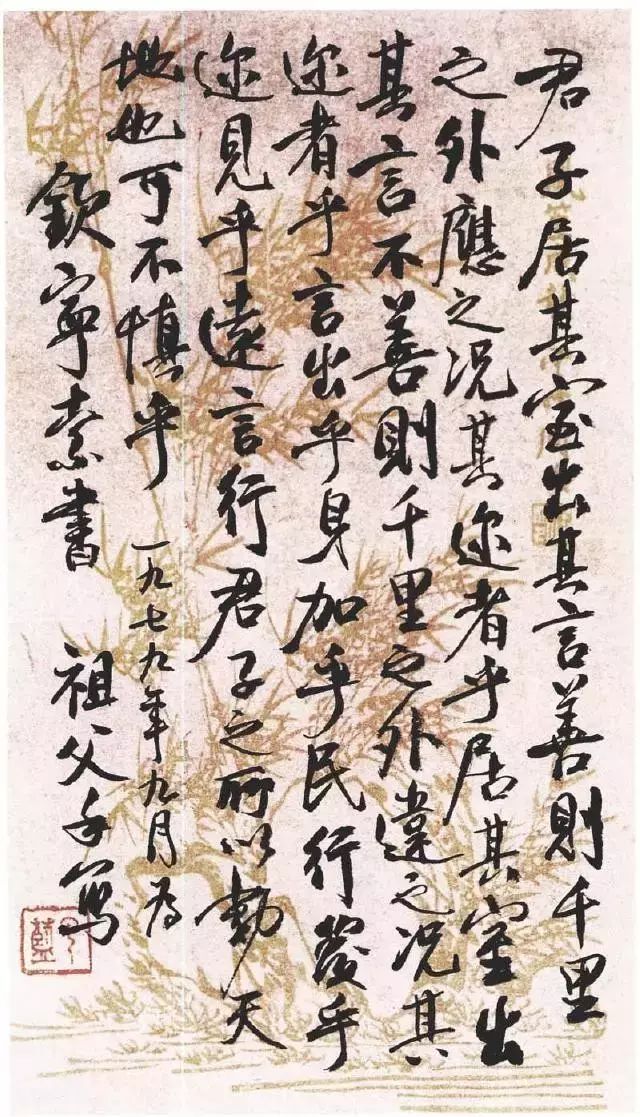 君子居其室出其言善則千里
之外應之况其迩者乎居其室出
其言不善則千里之外違之况其
迩者乎言出乎身加乎民行發乎
迩見乎遠言行君子之所以動天
地也可不慎乎 一九七九年九月为
欽寧索書 祖父手寫